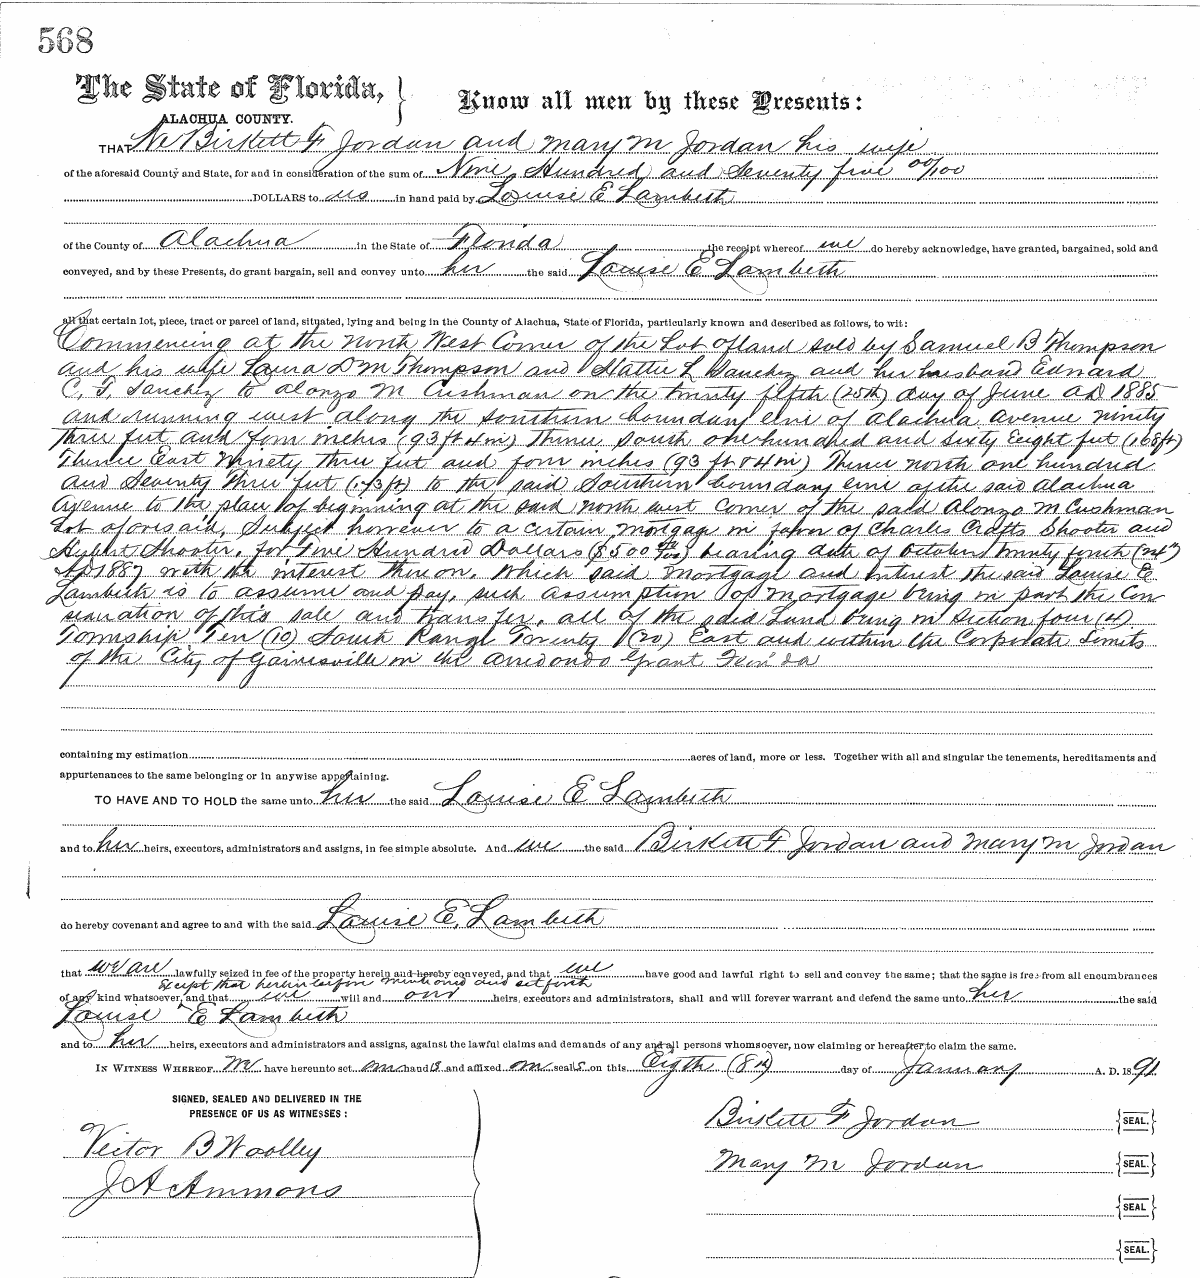 568
The State of Florida,
ALACHUA COUNTY.
Know all men by these Presents:
THAT We Birkett F Jordan and Mary M Jordan his wife
of the aforesaid County and State, for and in consideration of the sum of Nine Hundred and Seventy five 00/100
DOLLARS to us in hand paid by Louise E Lambeth
of the County of Alachua in the State of Florida the receipt whereof we do hereby acknowledge, have granted, bargained, sold and
conveyed, and by these Presents, do grant bargain, sell and convey unto her the said Louise E Lambeth
all that certain lot, piece, tract or parcel of land, situated, lying and being in the County of Alachua, State of Florida, particularly known and described as follows, to wit:
Commencing at the North West Corner of the Lot of land sold by Samuel B Thompson
and his wife Laura D M Thompson and Hattie L Sanchez and her husband Edward
C. F. Sanchez to Alonzo M Cushman on the twenty fifth (25th) day of June AD 1885
and running west along the southern boundary line of Alachua Avenue ninety
three feet and four inches (93 ft 4 in) Thence south one hundred and sixty Eeight feet (168ft)
Thence East Ninety three feet and four inches (93 ft 4 in) Thence north one hundred
and Seventy three feet (173ft) to the said Southern boundary line of the said Alachua
Avenue to the place of beginning at the said north west corner of the said Alonzo M Cushman
Lot aforesaid, Subject however to a certain mortgage in favor of Charles Crafts Shooter and
Shooter, for Five Hundred Dollars ($500 00/100) bearing date of October twenty fourth (24th)
AD 1887 with the interest thereon. Which said Mortgage and interest the said Louise E
Lambeth is to assume and pay, such assumption of mortgage being in part the Con
sideration of this sale and transfer, all of the said Land being in Section four (4)
Township Ten (10) South Range Twenty (20) East and within the Corporate Limits
of the City of Gainesville in the Arredondo Grant Florida
containing my estimation acres of land, more or less. Together with all and singular the tenements, hereditaments and
appurtenances to the same belonging or in anywise appertaining.
TO HAVE AND TO HOLD the same unto her the said Louise E Lambeth
and to her heirs, executors, administrators and assigns, in fee simple absolute. And we the said Birkett F Jordan and Mary M Jordan
do hereby covenant and agree to and with the said Louise E. Lambeth
that we are lawfully seized in fee of the property herein and hereby conveyed, and that we have good and lawful right to sell and convey the same; that the same is free from all encumbrances
Except that hereinbefore mentioned and set forth
of any kind whatsoever, and that we will and our heirs, executors and administrators, shall and will forever warrant and defend the same unto her the said
Louise E Lambeth
and to her heirs, executors and administrators and assigns, against the lawful claims and demands of any and all persons whomsoever, now claiming or hereafter to claim the same.
IN WITNESS WHEREOF We have hereunto set our hands and affixed our seals on this Eigth (8th) day of January A. D. 1891.
SIGNED, SEALED AND DELIVERED IN THE
PRESENCE OF US AS WITNESSES:
Victor B Woolley
J A Ammons
Birkett F Jordan SEAL.
Mary M Jordan SEAL.
SEAL
SEAL.